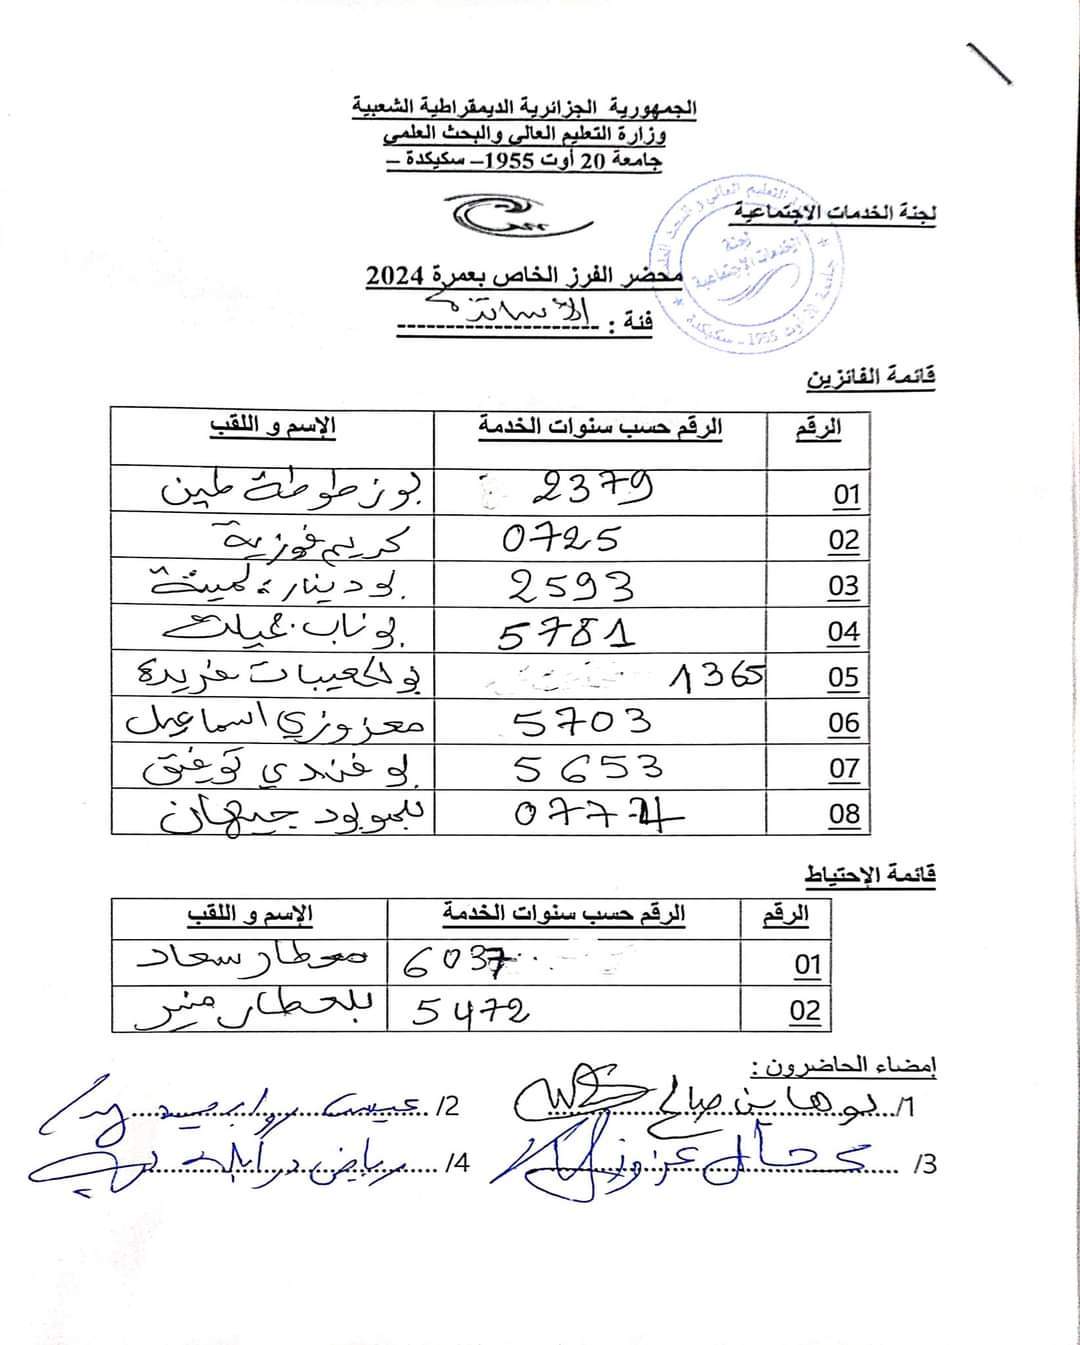 الجمهورية الجزائرية الديمقراطية الشعبية
وزارة التعليم العالي والبحث العلمي
جامعة 20 أوت 1955– سكيكدة –
لجنة الخدمات الاجتماعية
لجنة
الخدمات الإجتماعية
جامعة 20 أوت 1955 - سكيكدة
محضر الفرز الخاص بعمرة 2024
فئة : الأساتذة
قائمة الفائزين
الرقم الرقم حسب سنوات الخدمة الإسم و اللقب
01 2379 بوزطوطة
02 0725 كريم فوزية
03 2593 بودينار
04 5781 بوناب
05 1365 بولكعيبات فريدة
06 5703 معزوزي اسماعيل
07 5653 بوفندي توفيق
08 0774 بلمولود جيهان
قائمة الإحتياط
الرقم الرقم حسب سنوات الخدمة الإسم و اللقب
01 6037 معطار سعاد
02 5472 بلعطار منير
إمضاء الحاضرون :
1/ صالح
2/
3/ كحال عزوز
4/ رياض